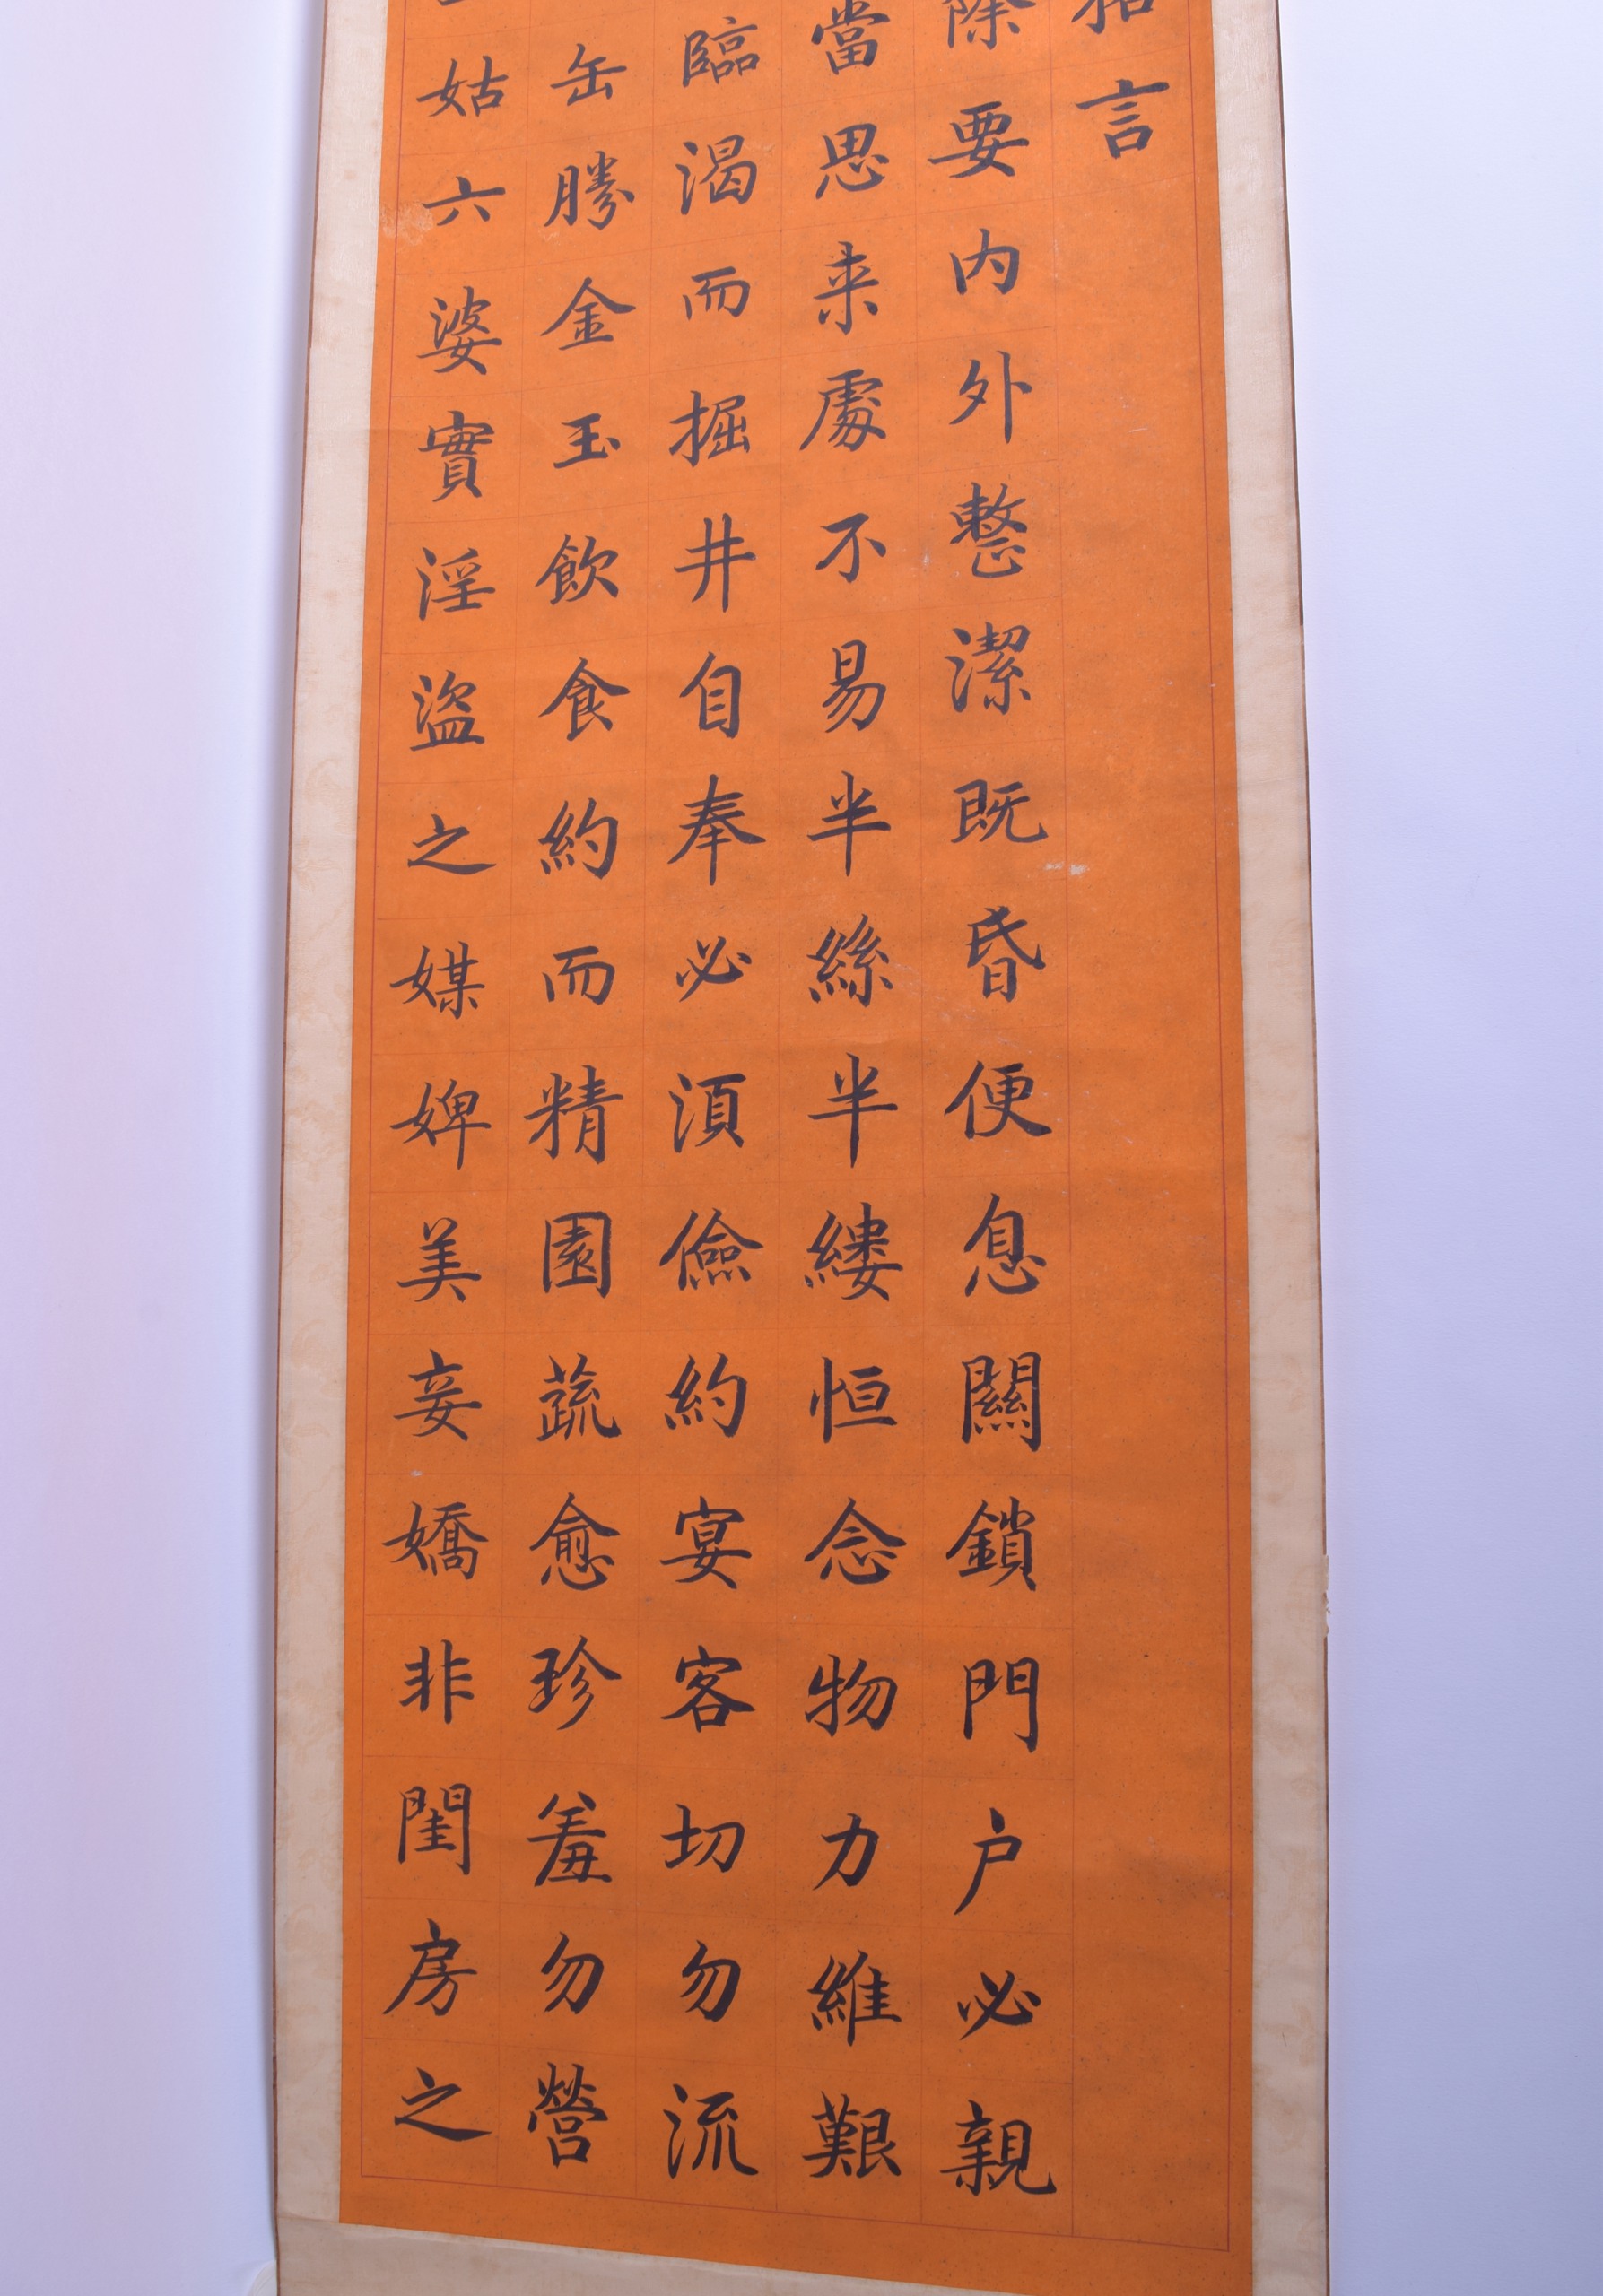 格言
除要内外整潔既昏便息關鎖門户必親
當思来處不易半絲半縷恒念物力維艱
臨渴而掘井自奉必須儉約宴客切勿流
缶勝金玉飲食約而精園蔬愈珍羞勿營
姑六婆實淫盗之媒婢美妾嬌非閨房之